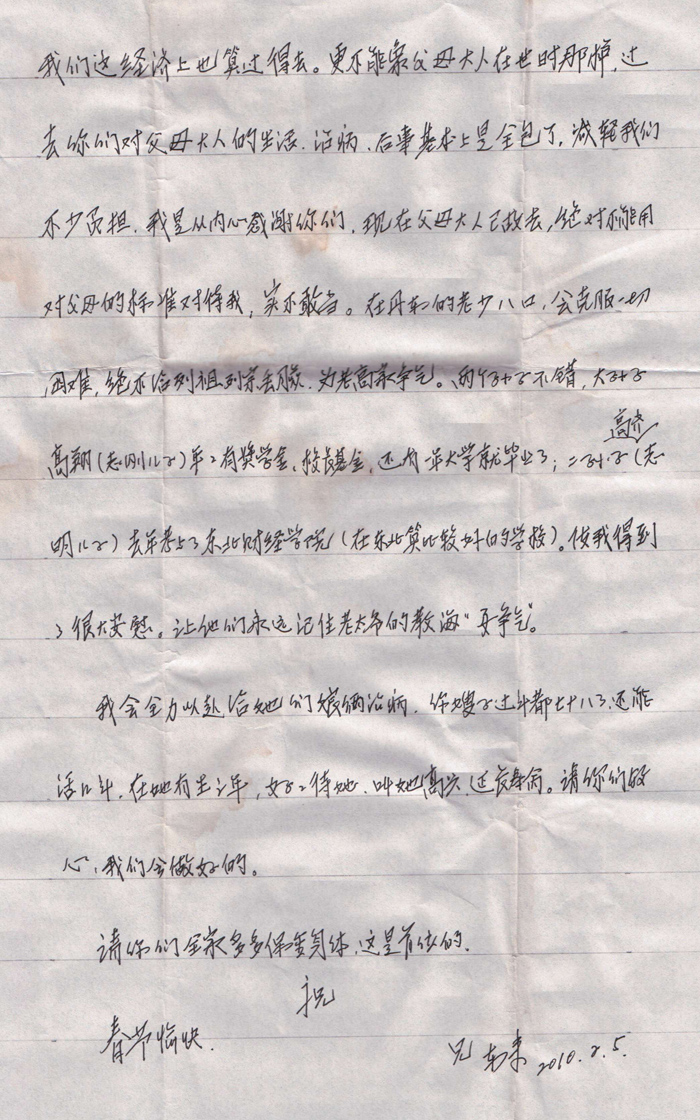 我们这经济上也算过得去。更不能象父母大人在世时那样,过
去你们对父母大人的生活、治病、后事基本上是全包了,减轻我们
不少负担,我是从内心感谢你们,现在父母大人已故去,绝对不能用
对父母的标准对待我,实不敢当。在丹东的老少八口,会克服一切
困难,绝不给列祖列宗丢脸,为老高家争气。两个孙子不错,大孙子
高翔(志刚儿子)年年有奖学金、校友基金,还有一年大学就毕业了;二孙子
高济
(志
明儿子)去年考上了东北财经学院(在东北算比较好的学校)。使我得到
了很大安慰。让他们永远记住老太爷的教诲"要争气"。
我会全力以赴给她们娘俩治病,你嫂子过年都七十八了,还能
活几年,在她有生之年,好好待她,叫她高兴,延长寿命。请你们放
心,我们会做好的。
请你们全家多多保重身体,这是首位的。
祝
春节愉快。
兄 2010.2.5.